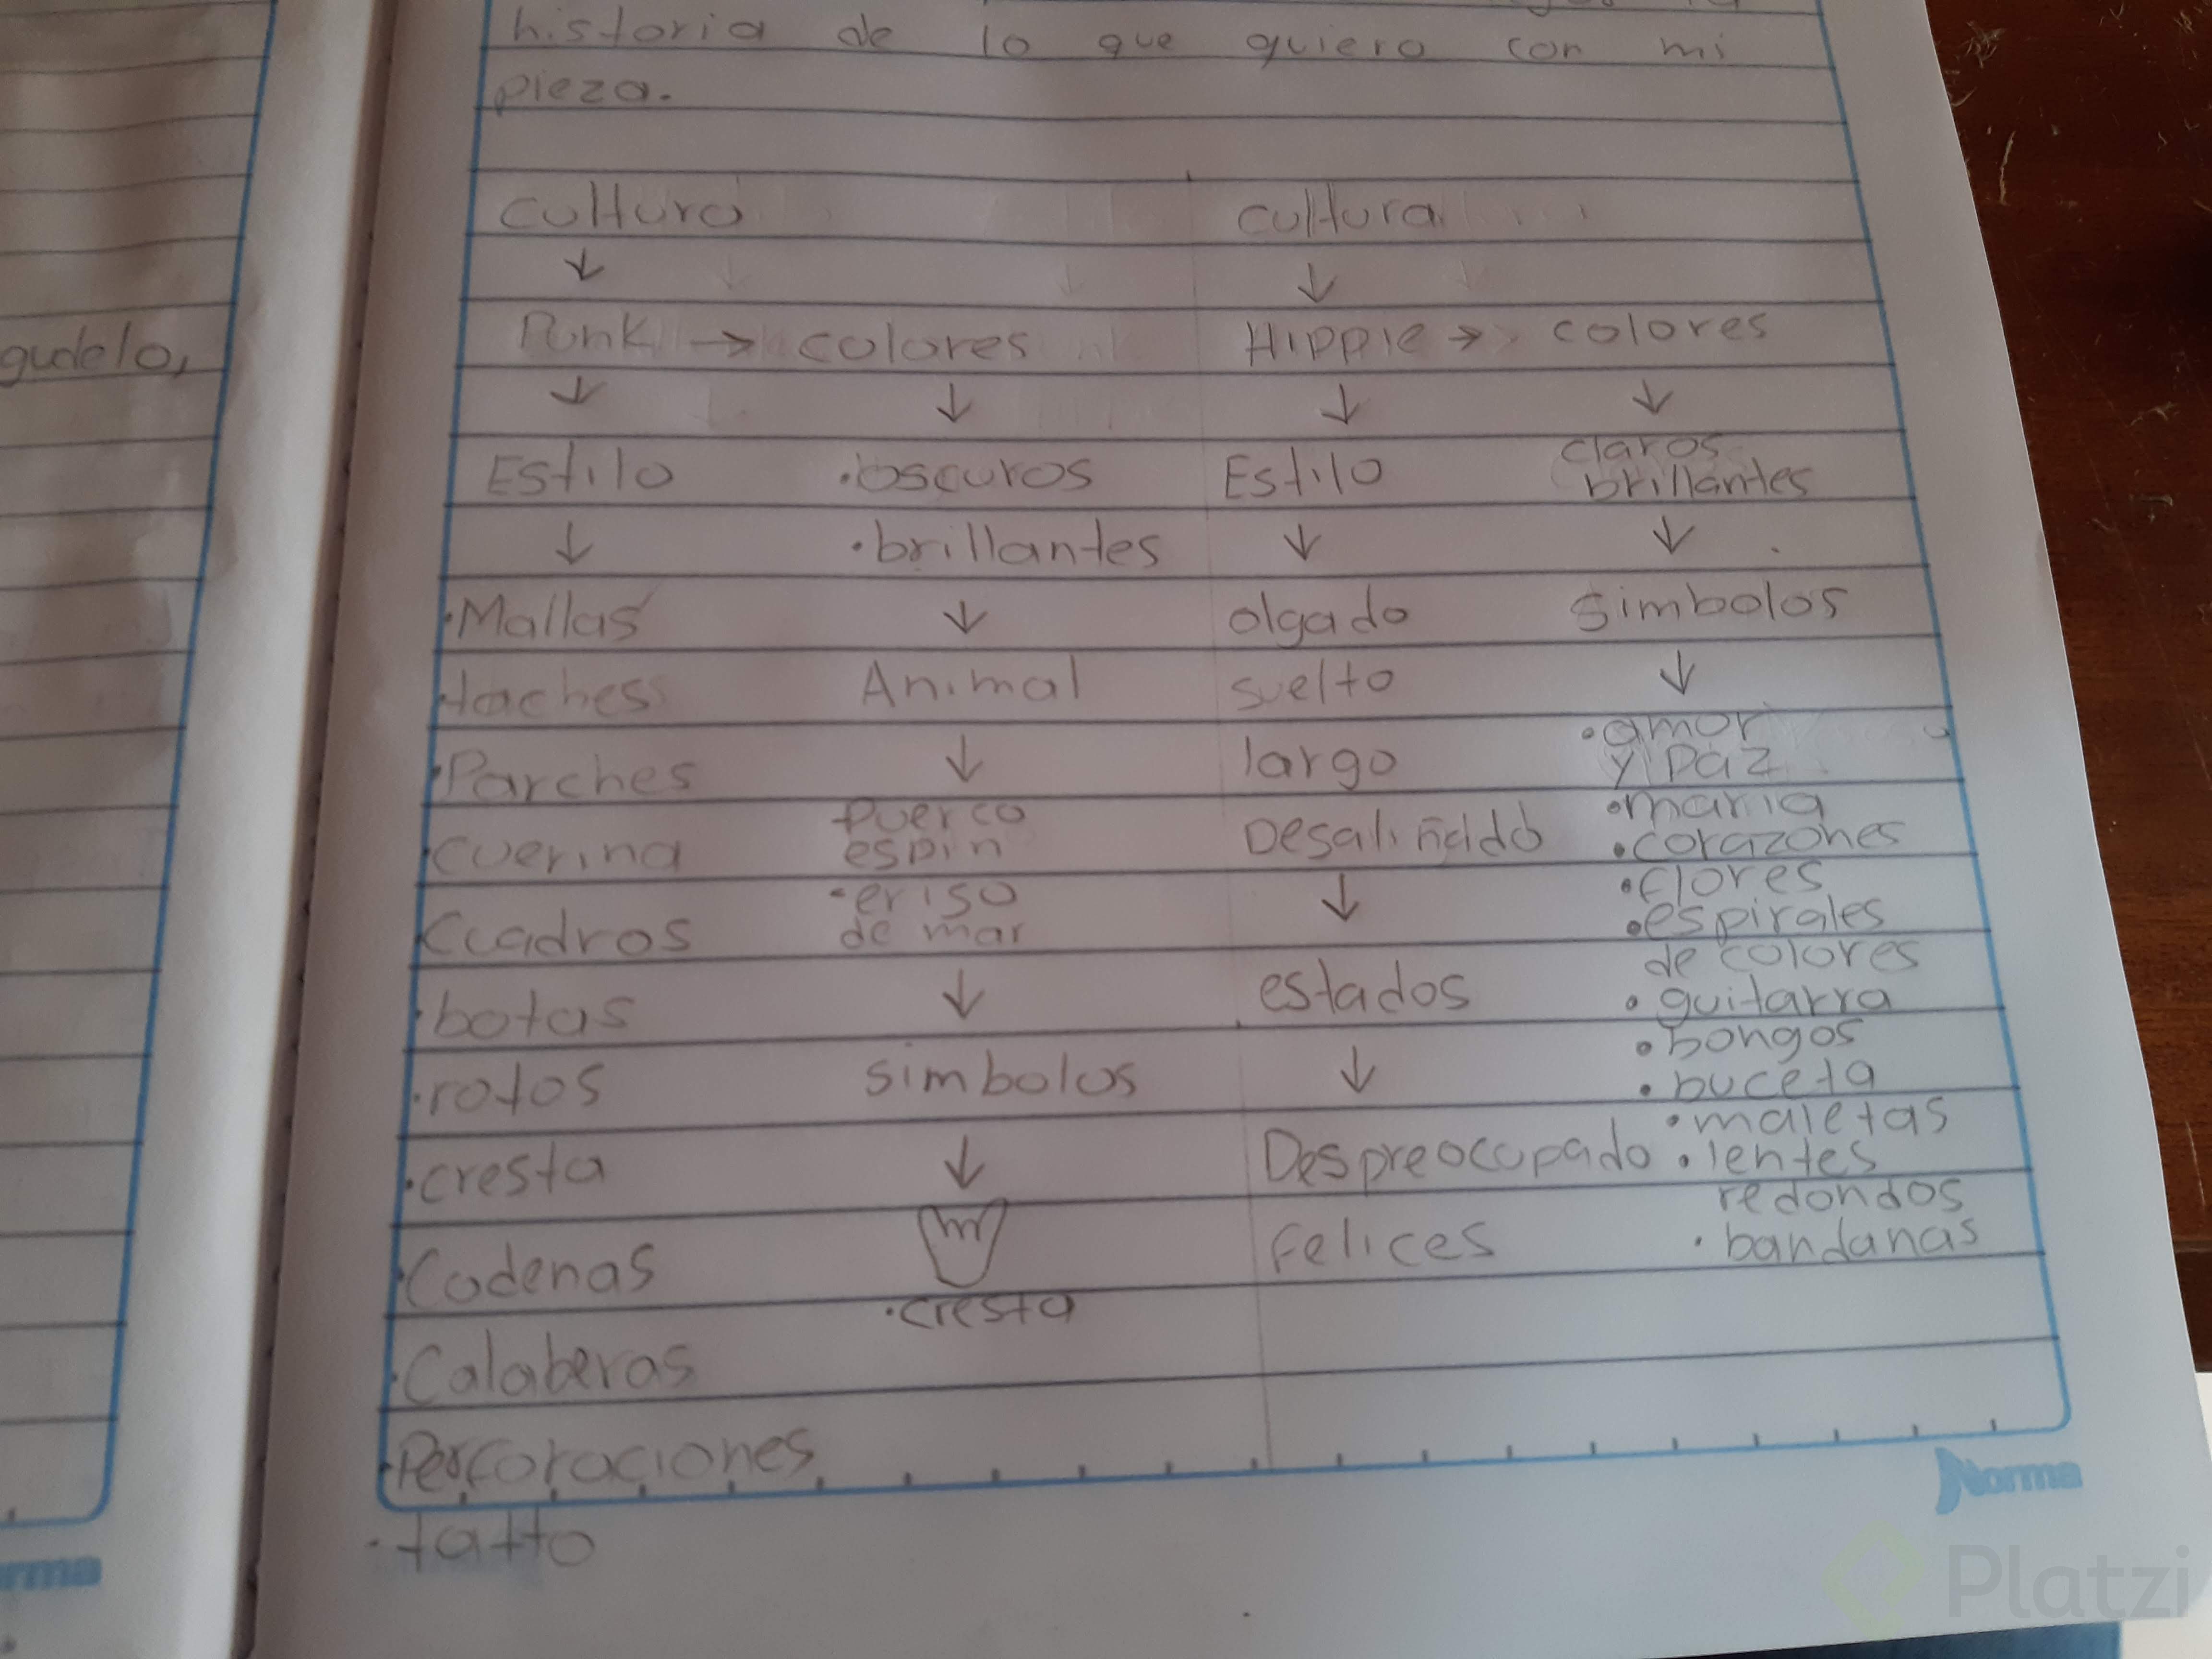 historia de lo que quiero con mi
pieza.
gudelo,
Cultura
↓
Punk → colores
↓ ↓
Estilo
↓
•Mallas
•taches
•Parches
•cuerina
•Cuadros
•botas
•rotos
•cresta
•Cadenas
•Calaberas
•Perforaciones
•tatto
•oscuros
•brillantes
↓
Animal
↓
Puerco
espin
•eriso
de mar
↓
simbolos
↓
•cresta
cultura
↓
Hippie → colores
↓ ↓
Estilo
↓
olgado
suelto
largo
Desaliñado
↓
estados
↓
Despreocupado
Felices
claros
brillantes
↓
simbolos
↓
•amor
y paz
•maria
•corazones
•flores
•espirales
de colores
•guitarra
•bongos
•buceta
•maletas
•lentes
redondos
•bandanas
Norma
rma
Platzi